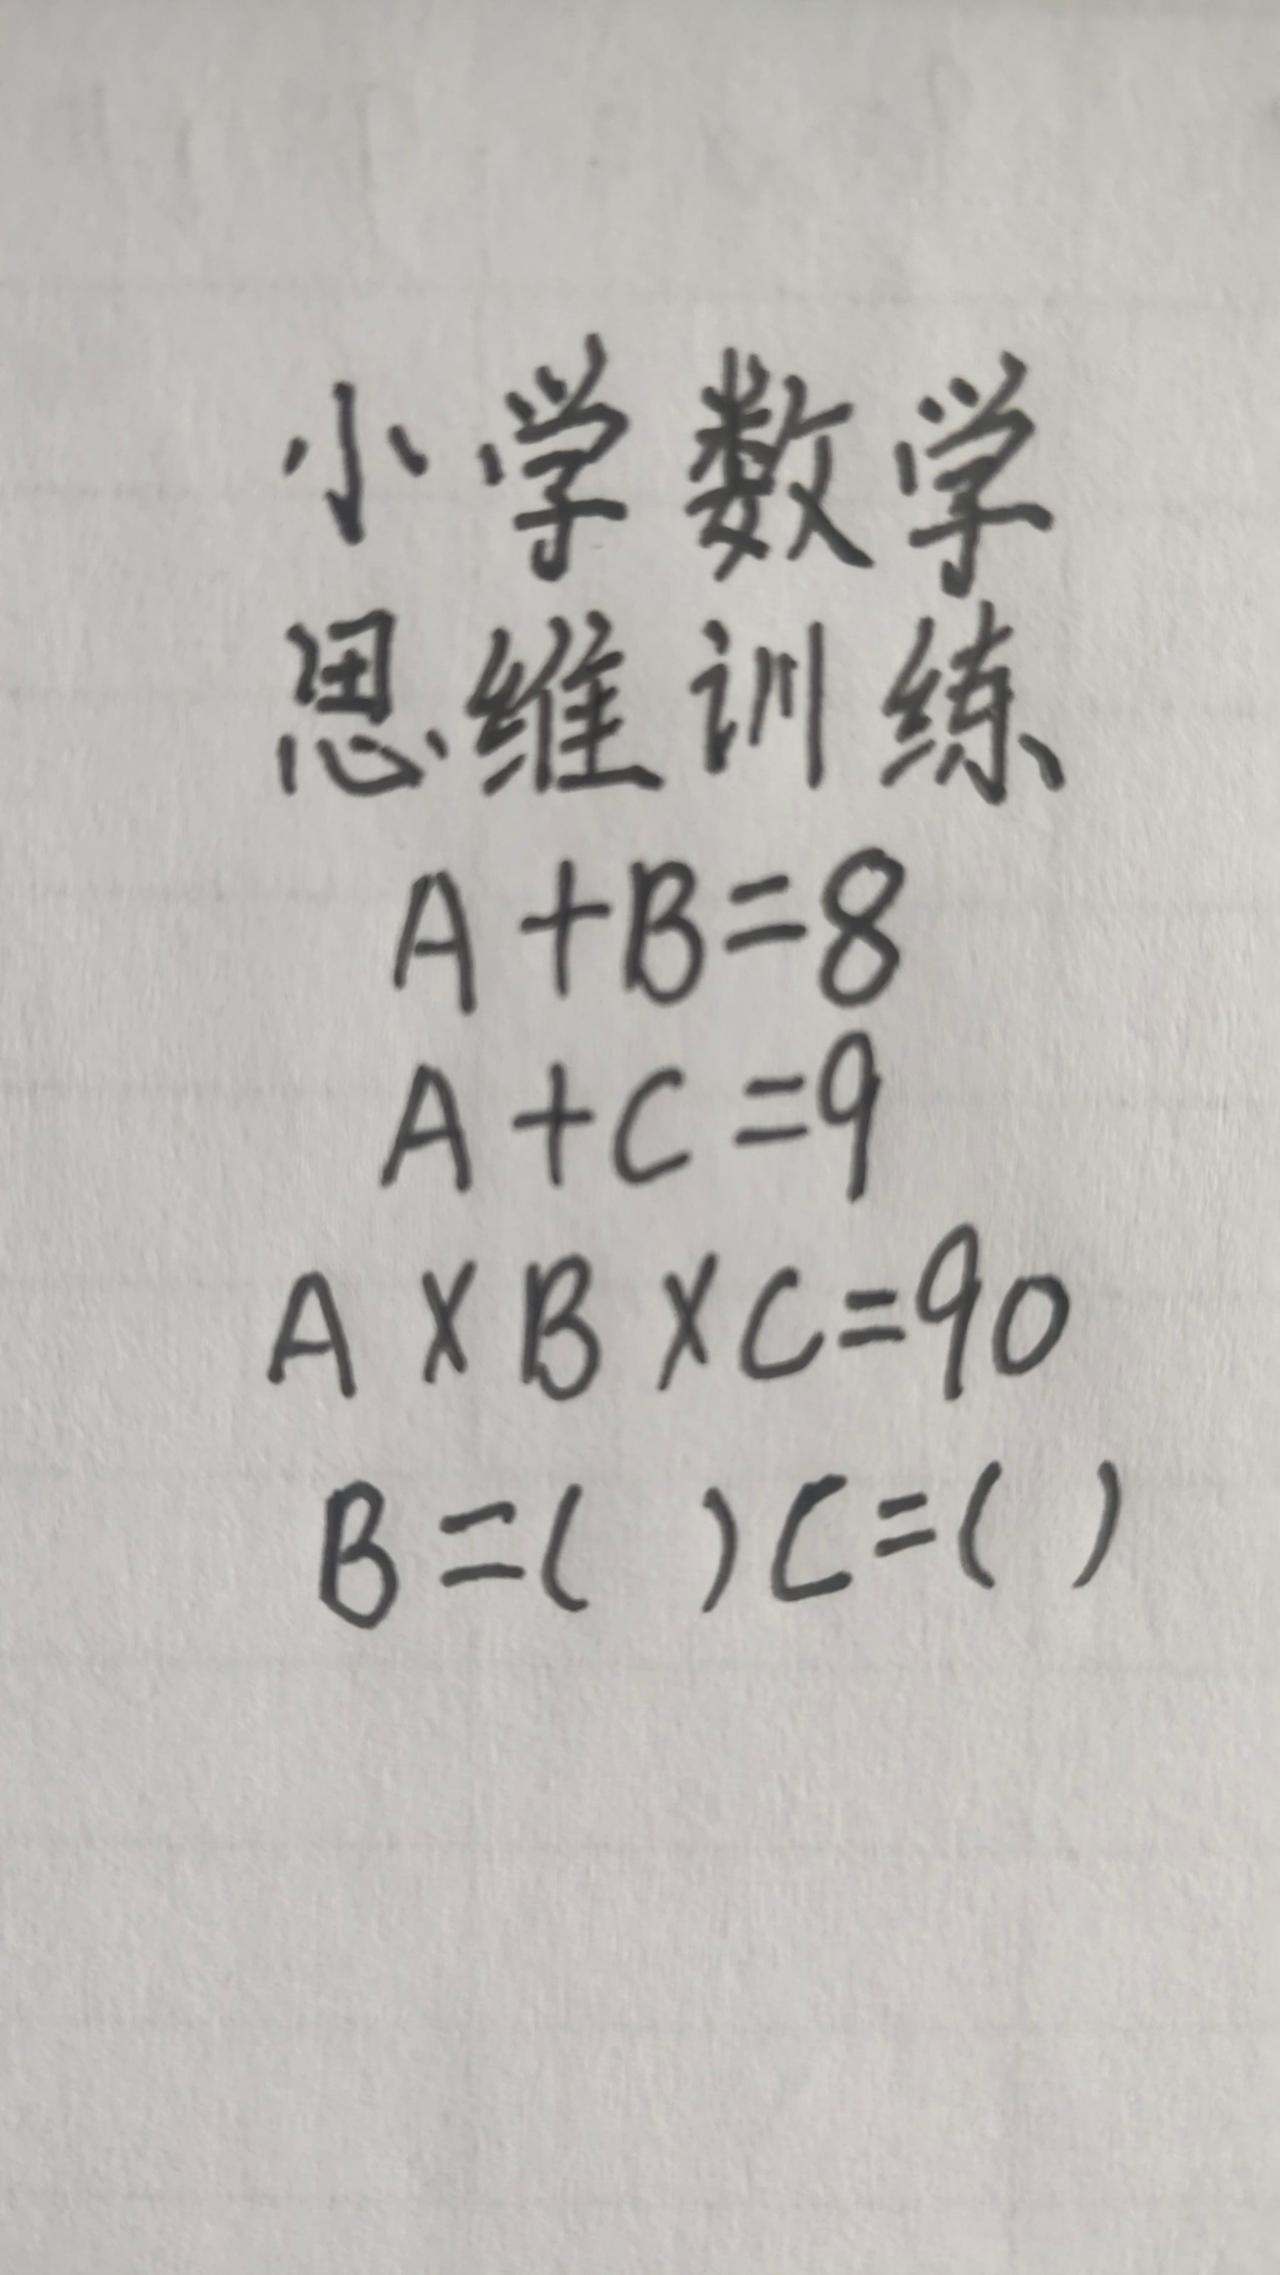 小学数学
思维训练
A+B=8
A+C=9
A×B×C=90
B=( ) C=( )